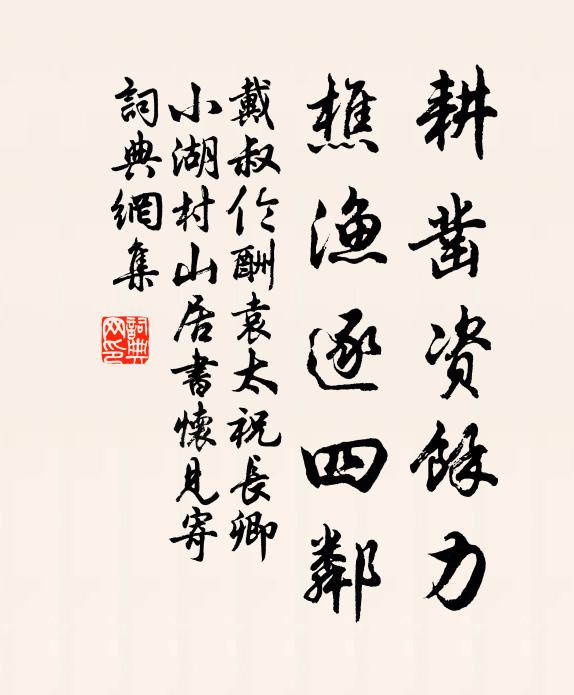 耕凿资馀力
樵渔逐四鄰
戴叔伦酬袁太祝長卿
小湖村山居書懷見寄
詞典網集
詞典
网印